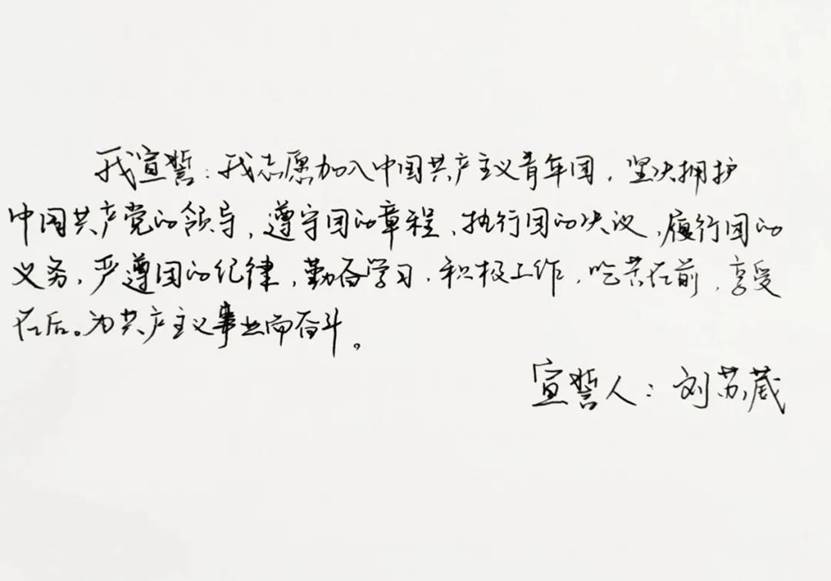 我宣誓：我志愿加入中国共产主义青年团，坚决拥护
中国共产党的领导，遵守团的章程，执行团的决议，履行团的
义务，严遵团的纪律，勤奋学习，积极工作，吃苦在前，享受
在后。为共产主义事业而奋斗。
宣誓人：刘苏葳